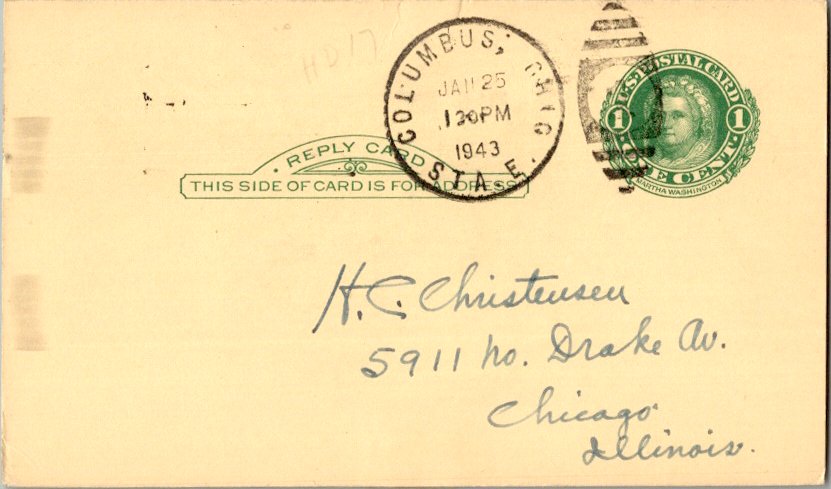 U·S·POSTAL CARD
1 1
ONE CENT
MARTHA WASHINGTON
COLUMBUS, OHIO
JAN 25
1 30PM
1943
STA. E.
REPLY CARD
THIS SIDE OF CARD IS FOR ADDRESS
H. C. Christensen
5911 No. Drake Av.
Chicago
Illinois.